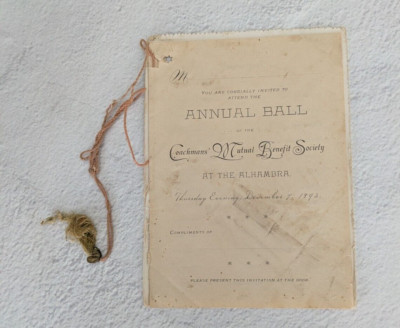 M
YOU ARE CORDIALLY INVITED TO
ATTEND THE
ANNUAL BALL
OF THE
Coachmens' Mutual Benefit Society
AT THE ALHAMBRA
Thursday Evening, December
COMPLIMENTS OF
PLEASE PRESENT THIS INVITATION AT THE DOOR